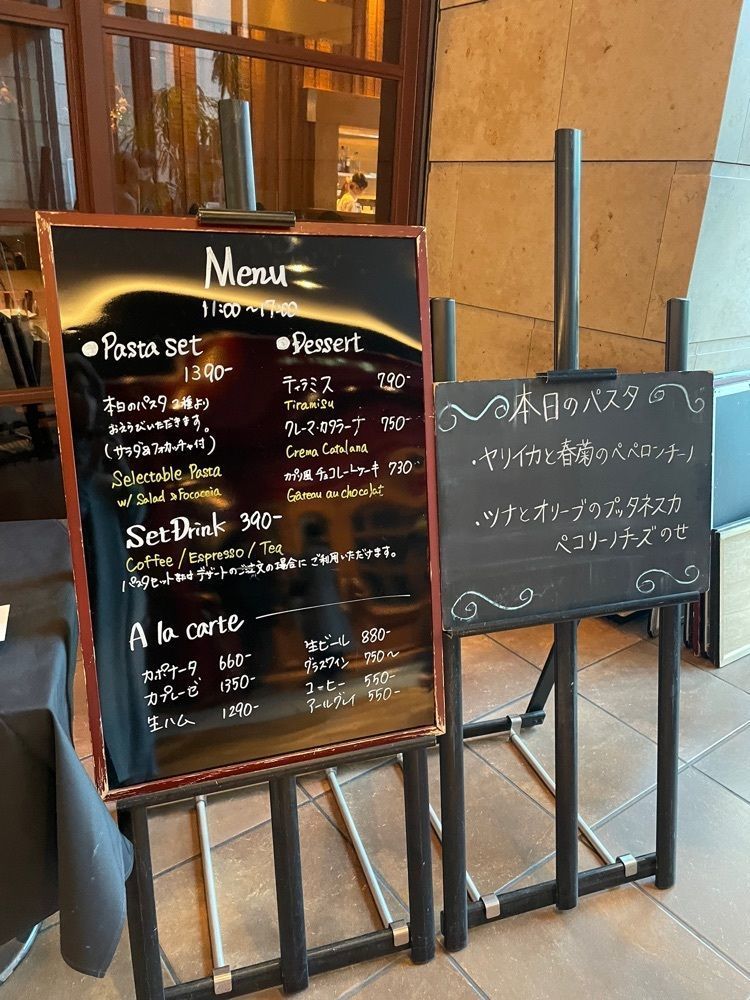 Menu
11:00〜17:00
Pasta set
1390-
本日のパスタ2種より
おえらびいただきます。
(サラダ&フォカッチャ付)
Selectable Pasta
w/ Salad & Focaccia
Dessert
ティラミス 790-
Tiramisu
クレーマ・カタラーナ 750-
Crema Catalana
カプリ風チョコレートケーキ 730
Gâteau au chocolat
Set Drink 390-
Coffee / Espresso / Tea
パスタセット デザートのご注文の場合にご利用いただけます。
A la carte
カポナータ 660-
カプレーゼ 1350-
生ハム 1290-
生ビール 880-
グラスワイン 750〜
コーヒー 550-
アールグレイ 550-
本日のパスタ
・ヤリイカと春菊のペペロンチーノ
・ツナとオリーブのプッタネスカ
ペコリーノチーズのせ